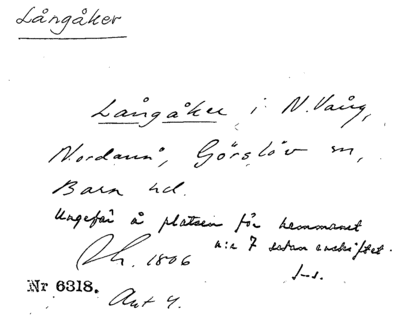 Långåker
Långåker i N. Vång,
Nordanå, Görslöv sn,
Bara hd.
Ungefär å platsen för hemmanet
n:r 7 sedan enskiftet.
1806
Nr 6318.
Akt 4.